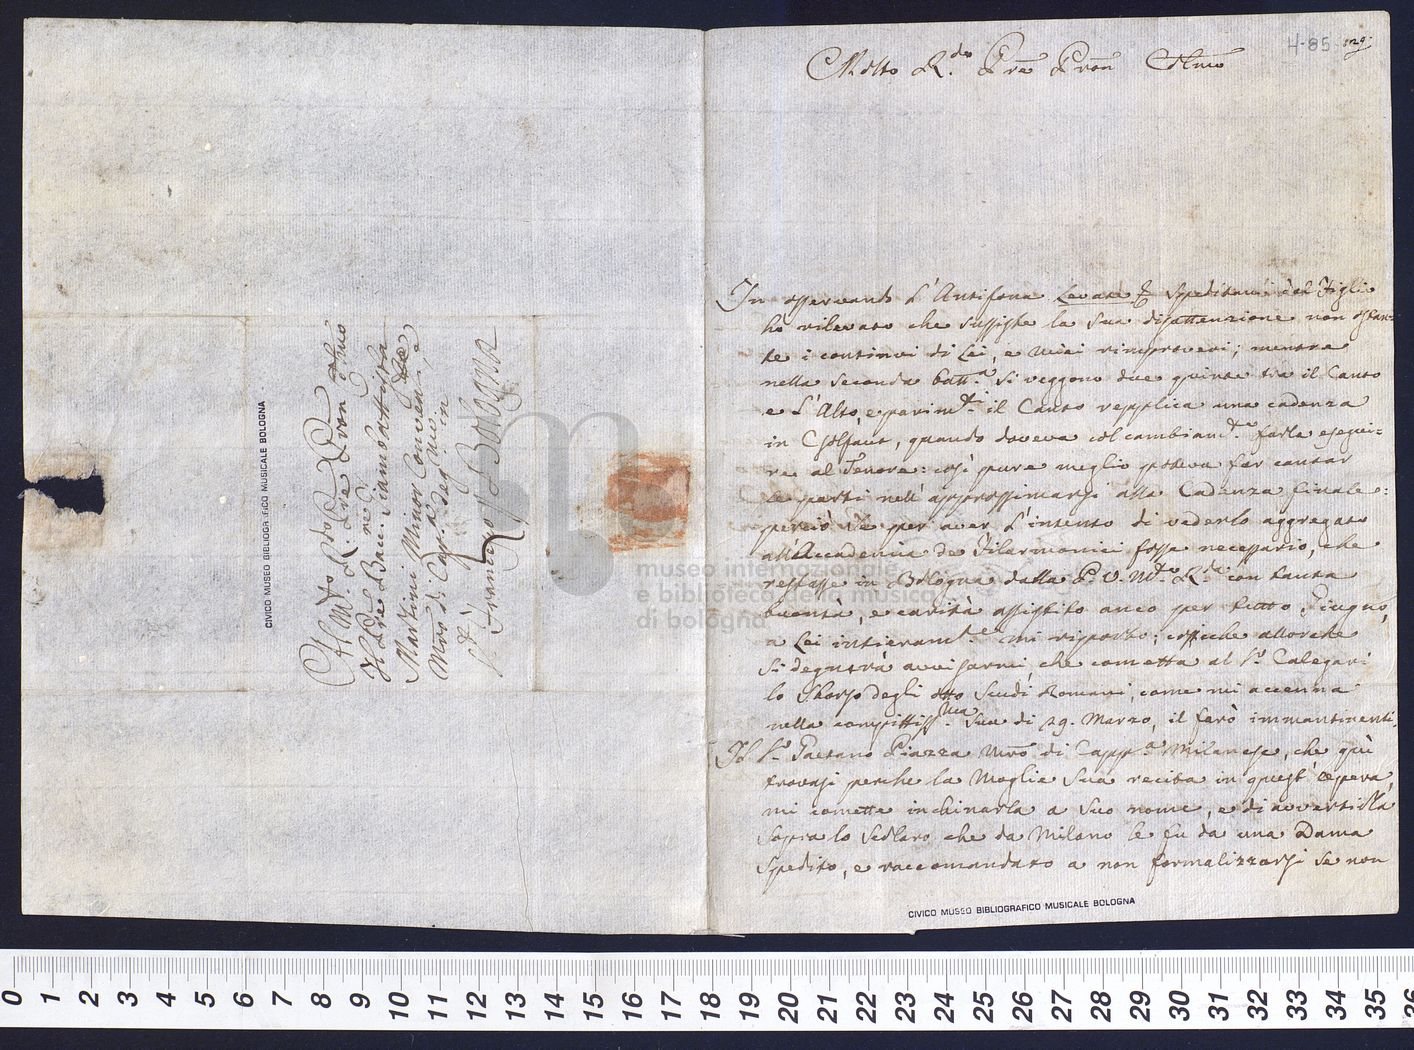 H-85
129.
Molto R.do Pre Pron Colmo
In osservando l'Antifona Levate & speditami dal Figlio
hò rilevato che sussiste la sua disattenzione non ostan-
te i continui di Lei, e miei rimproveri; mentre
nella seconda batt.a si veggono due quinte trà il Canto
e l'Alto, e parim.te il Canto repplica una cadenza
in Gsolfaut, quando doveva col cambiam.to farla esegui-
re al Tenore: così pure meglio poteva far cantar
le parti nell'approssimarsi alla Cadenza finale:
perciò se per aver l'intento di vederlo aggregato
all'Accademia de Filarmonici fosse necessario, che
restasse in Bologna dalla P. V. M.to R.da con tanta
bontà, e carità assistito anco per tutto Giugno,
a Lei intieram.te mi riporto; cosicche allorche
si degnerà avvisarmi, che cometta al S.r Calegari
lo sborso degli otto Scudi Romani, come mi accenna
nella compitiss.ma Sua di 29. Marzo, il farò immantinenti.
Il S.r Gaetano Piazza Mro di Capp.a Milanese, che quì
trovasi perche la Moglie sua recita in quest'opera,
mi comette inchinarla a suo nome, e di avvertirla
sopra lo Scolaro che da Milano le fu da una Dama
spedito, e raccomandato a non formalizzarsi se non
CIVICO MUSEO BIBLIOGRAFICO MUSICALE BOLOGNA
CIVICO MUSEO BIBLIOGRAFICO MUSICALE BOLOGNA
Al M.to R.do Pre Pron Colmo
Il Pre Bacc. Giambattista
Martini Minor Convene, e
Mro di Capp.a degnissimo in
S. Francesco di Bologna
museo internazionale
e biblioteca della musica
di bologna
0 1 2 3 4 5 6 7 8 9 10 11 12 13 14 15 16 17 18 19 20 21 22 23 24 25 26 27 28 29 30 31 32 33 34 35 36